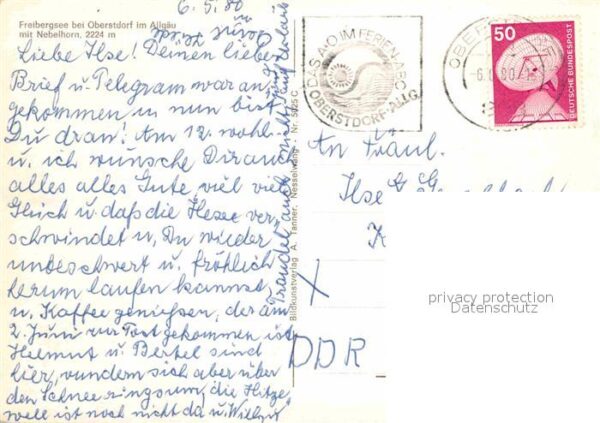 Freibergsee bei Oberstdorf im Allgäu
mit Nebelhorn, 2224 m
6.5.80
Liebe Ilse! Deinen lieben
Brief u. Telegram war an
gekommen u. nun bist
Du dran! Am 12. wohl
u. ich wünsche Dir auch
alles alles Gute viel viel
Glück u. daß die Hexe ver-
schwindet u. Du wieder
unbeschwert u. fröhlich
herum laufen kannst,
u. Kaffee genießen, der am
2. Juni zur Post gekommen ist
Helmut u. Bertel sind
hier, wundern sich aber über
den Schnee ringsum, die Hitze
welle ist noch nicht da u.
auch
Bildkunstverlag A. Tanner, Nesselwang - Nr. 5225 C
DAS A-O IM FERIEN-ABC
OBERSTDORF/ALLG.
OBERSTDORF
50
DEUTSCHE BUNDESPOST
An Fräul.
Ilse
X
DDR
privacy protection
Datenschutz